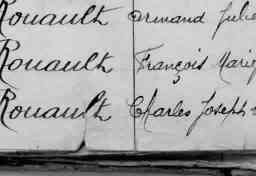 Rouault Armand Julie
Rouault François Marie
Rouault Charles Joseph